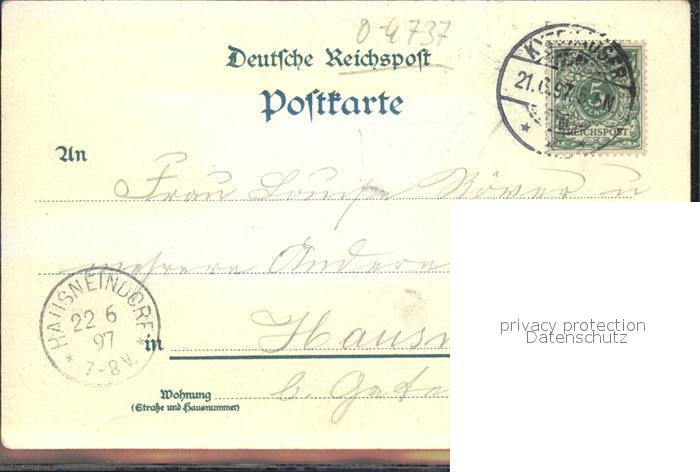 0-4737
Deutsche Reichspost
Postkarte
KYFFHÄUSER
21.6.97 N
5
REICHSPOST
An
Frau Louise Röver u
mehrere Andere
HAUSNEINDORF
22 6
97
* 7-8 V. *
in Hausn
b. Gate
Wohnung
(Straße und Hausnummer)
privacy protection
Datenschutz